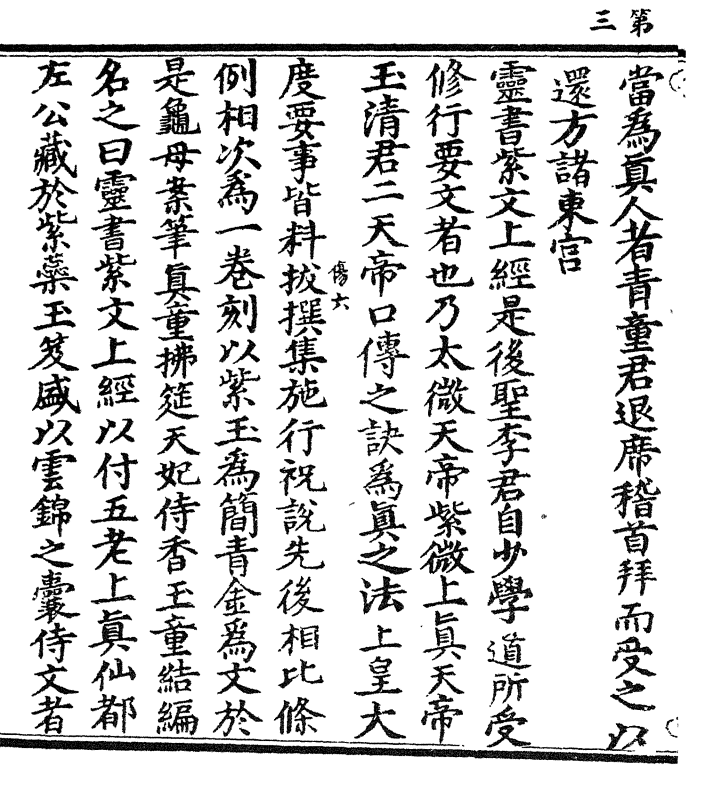 第三
當為真人者青童君退席稽首拜而受之以
還方諸東宮
靈書紫文上經是後聖李君自少學道所受
修行要文者也乃太微天帝紫微上真天帝
玉清君二天帝口傳之訣為真之法上皇大
傷六
度要事皆料拔撰集施行祝說先後相比條
例相次為一卷刻以紫玉為簡青金為文於
是龜母案筆真童拂筵天妃侍香玉童結編
名之曰靈書紫文上經以付五老上真仙都
左公藏於紫蘂玉笈盛以雲錦之囊侍文者